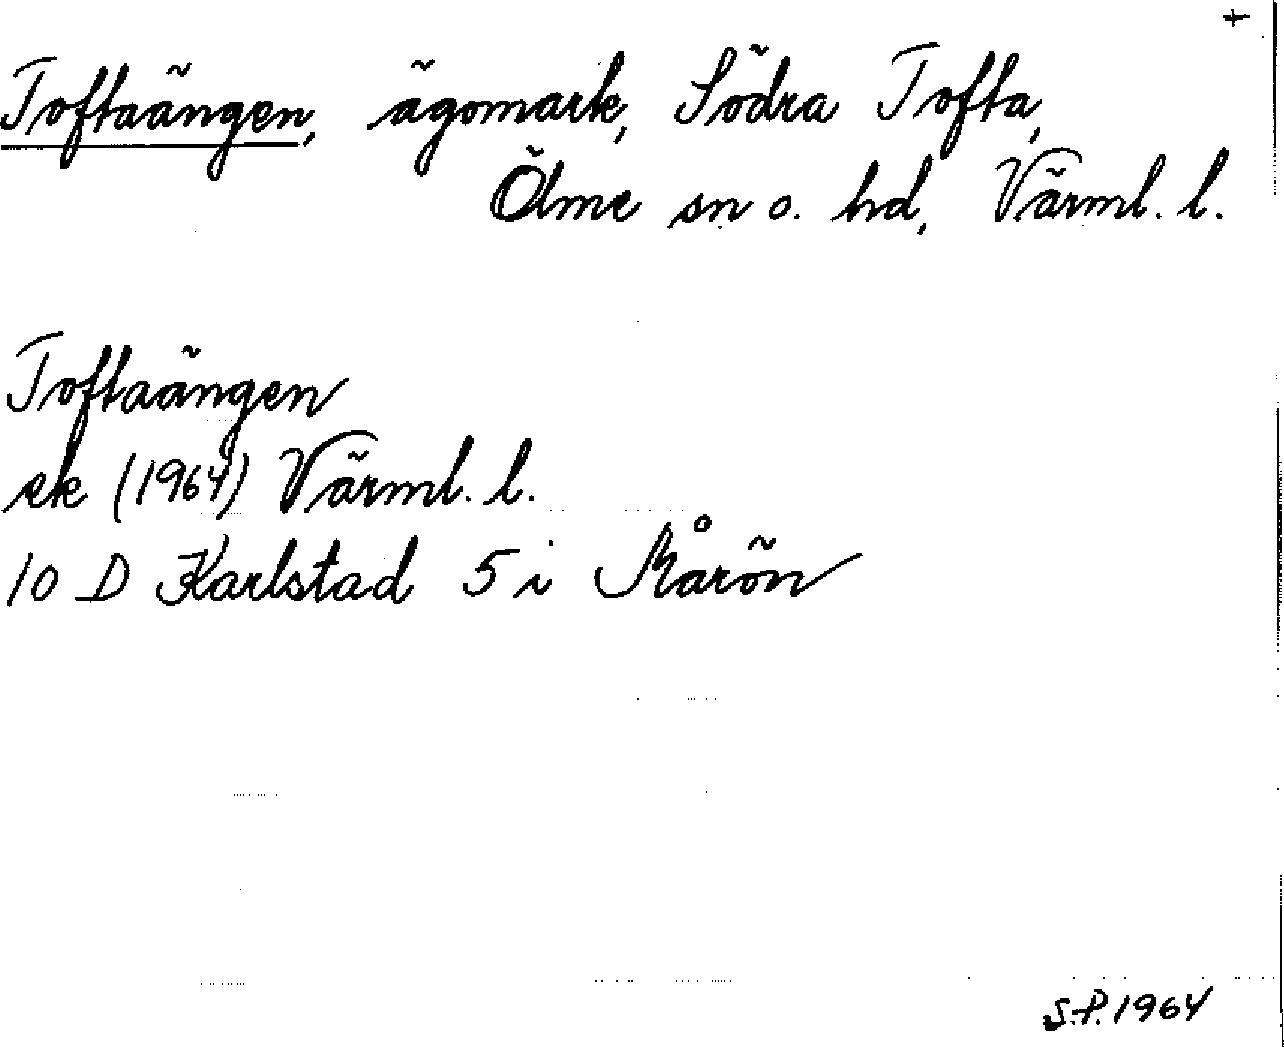 +
Toftaängen, ägomark, Södra Tofta,
Ölme sn o. hd, Värml. l.
Toftaängen
ek (1964) Värml. l.
10 D Karlstad 5 i Kårön
S.P. 1964